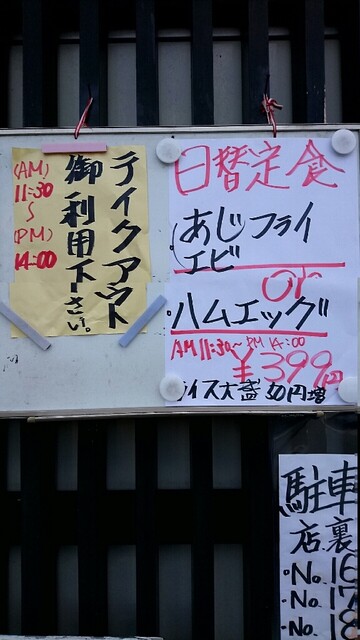 テイクアウト
御利用下さい。
(AM)
11:30
〜
(PM)
14:00
日替定食
あじフライ
エビ
or
ハムエッグ
AM 11:30~PM 14:00
¥399円
ライス大盛 30円増
駐車
店裏
・No.16
・No.17
・No.18